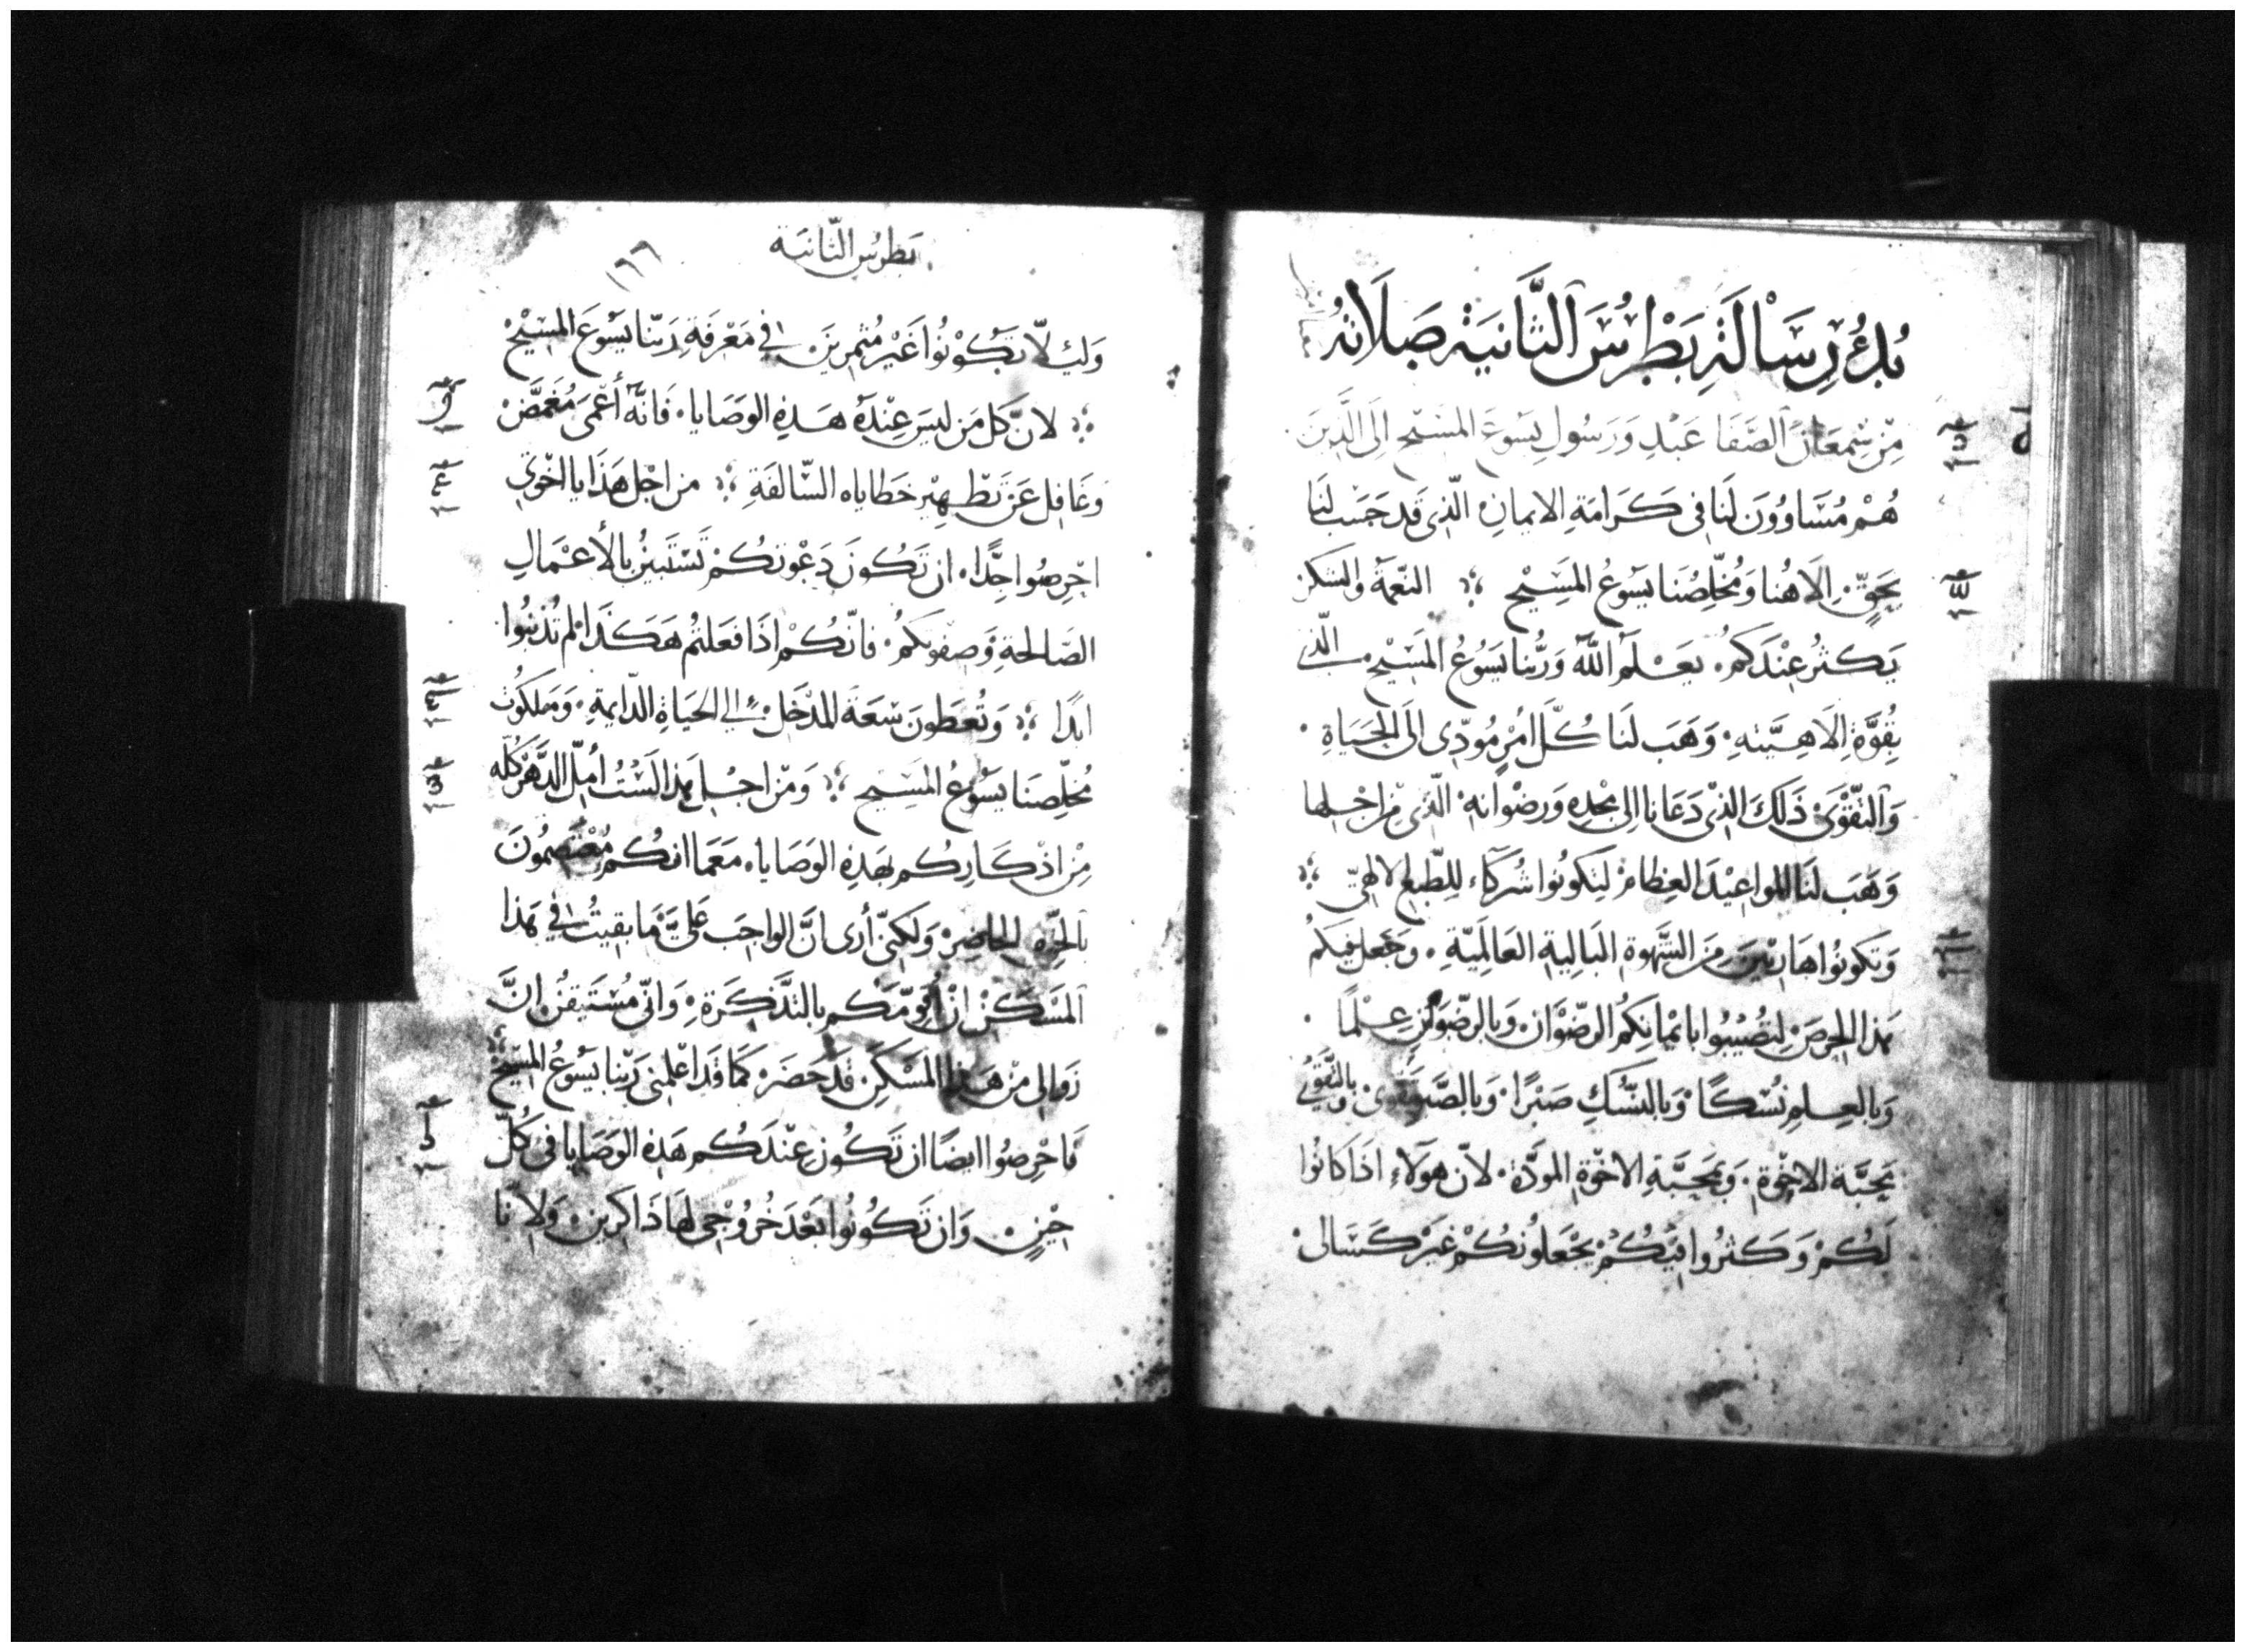 بُدُؤُ رِسَالَةِ بَطْرُسَ الثَّانِيَة صَلَاتهُ
مِّن سِّمعَان الصَّفَا عَبْدِ وَرَسُولِ يَسُوعَ المَسِيحِ اِلَى الَّذِينَ
هُمْ مُتَسَاوُونَ لَنَا فِى كَرَامَةِ الايمانِ الّذِى قَد حَسَب لَنَا
بِحَقِّ الَاهُنا وَمُخلِّصُنَا يَسُوعُ المَسِيح النّعمَة والسَّكن
يَكثرُ عِنْدَكُم بعَلَم اللّه وَرُبّنا يَسُوعُ المَسِيح الّذى
بِقُوَّةِ اِلَاهِيَّتهِ وَهَب لَنَا كُلَّ امْرٍ مُودّى الَى الحَيَاةِ
وَالتَّقْوَىٰ ذَلكَ الذِى دَعَانا الى مجدِهِ وَرضْوَانِهِ الّذى مِن اجْلِها
وَهَبَ لنَا المواعِيْدَ العِظامَ لِتَكونُوا شُركَآء لِلطّبعِ الالهىّ
وَتكونُوا هَاربِيْنَ مِنَ الشَّهوةِ البَالِيةِ العَالَمِيّةِ وَجَعل فيكُم
هَذا الحِرصَ لِتصُيْبُوا باِيْمانكِمُ الرِضْوَان وَبالرِضْوَانِ عِلْمًا
وَبالعِلمِ نُسْكًا وَبالنُسُكِ صَبْرًا وَبالصَّبر تَقوىٰ وَبالتَّقْوىٰ
مَحَبَّة الاخْوَةِ وَبمَحَبَّةِ الاخوَةِ المودَّة لانّ هوَلاَءِ اذَا كَانُوا
لَكُمْ وَكَثرُوا فِيْكُمْ يَجْعَلوُنكُمْ غَيْرَ كَسَالى
بَطرسُ الثَّانيَة
١٦٦
وَلِئلّا تكُوْنُوا غَيْرَ مُثمِريَن فِي مَعْرِفَةِ رَبّنا يَسُوعَ المسِيْحْ
لانَّ كلّ مَن لَيسَ عِنْدَهُ هَذِهِ الوَصَايا فَانهُ أَعْمَىٰ مُغَمَّضْ
وَغَافِل عَن تَطْهِيْر خَطاياه السّالفَةِ من اجْل هَذا يا اخْوَتي
احْرِصُوا جِدًّا ان تَكُونَ دَعْوَتكُمْ تَسْتَبيْنُ بالأعْمَالِ
الصَّالحةِ وَصفوتكُمُ فانّكُمْ اذَا فعَلتُم هَكذَا لم تُذنبُوا
ابدًا وَتُعطَونَ سَعَة المَدْخَل الي الحَيَاةِ الدّايمةِ وَمَلكَوُت
مُخلّصِنَا يَسُوْعُ المَسِيح وَمِّن اجْل هَذا لَسْتُ أملّ الدَّهْرَ كلّه
مِّن اذكَارِكُم بِهَذِهِ الوَصَايا مَعَمَا انكُم مُعْتَصِمُونَ
بالحِّقِ الحاضِرِ وَلَكِنّى أرى انَّ الواجِبَ عَلىَّ مَا بَقيتُ في هَذا
المَسْكَنْ ان اُقوِّمَكم بالتَّذكِرَةِ وَانّى مُسْتَيقنُ انَّ
زَوالى مِنْ هَذا المَسْكِن قَدْ حَضَرَ كَمَا قَد اعْلمنى رَبّنا يَسُوعُ المَسِيْح
فَاحْرِصُوا ايضًا ان تَكُون عِنْدَكُم هَذِهِ الوَصَايا فى كُلّ
حِيْنٍ وَان تَكُونُوا بَعْدَ خُروُجِى لَهَا ذَاكرين وَلانّا